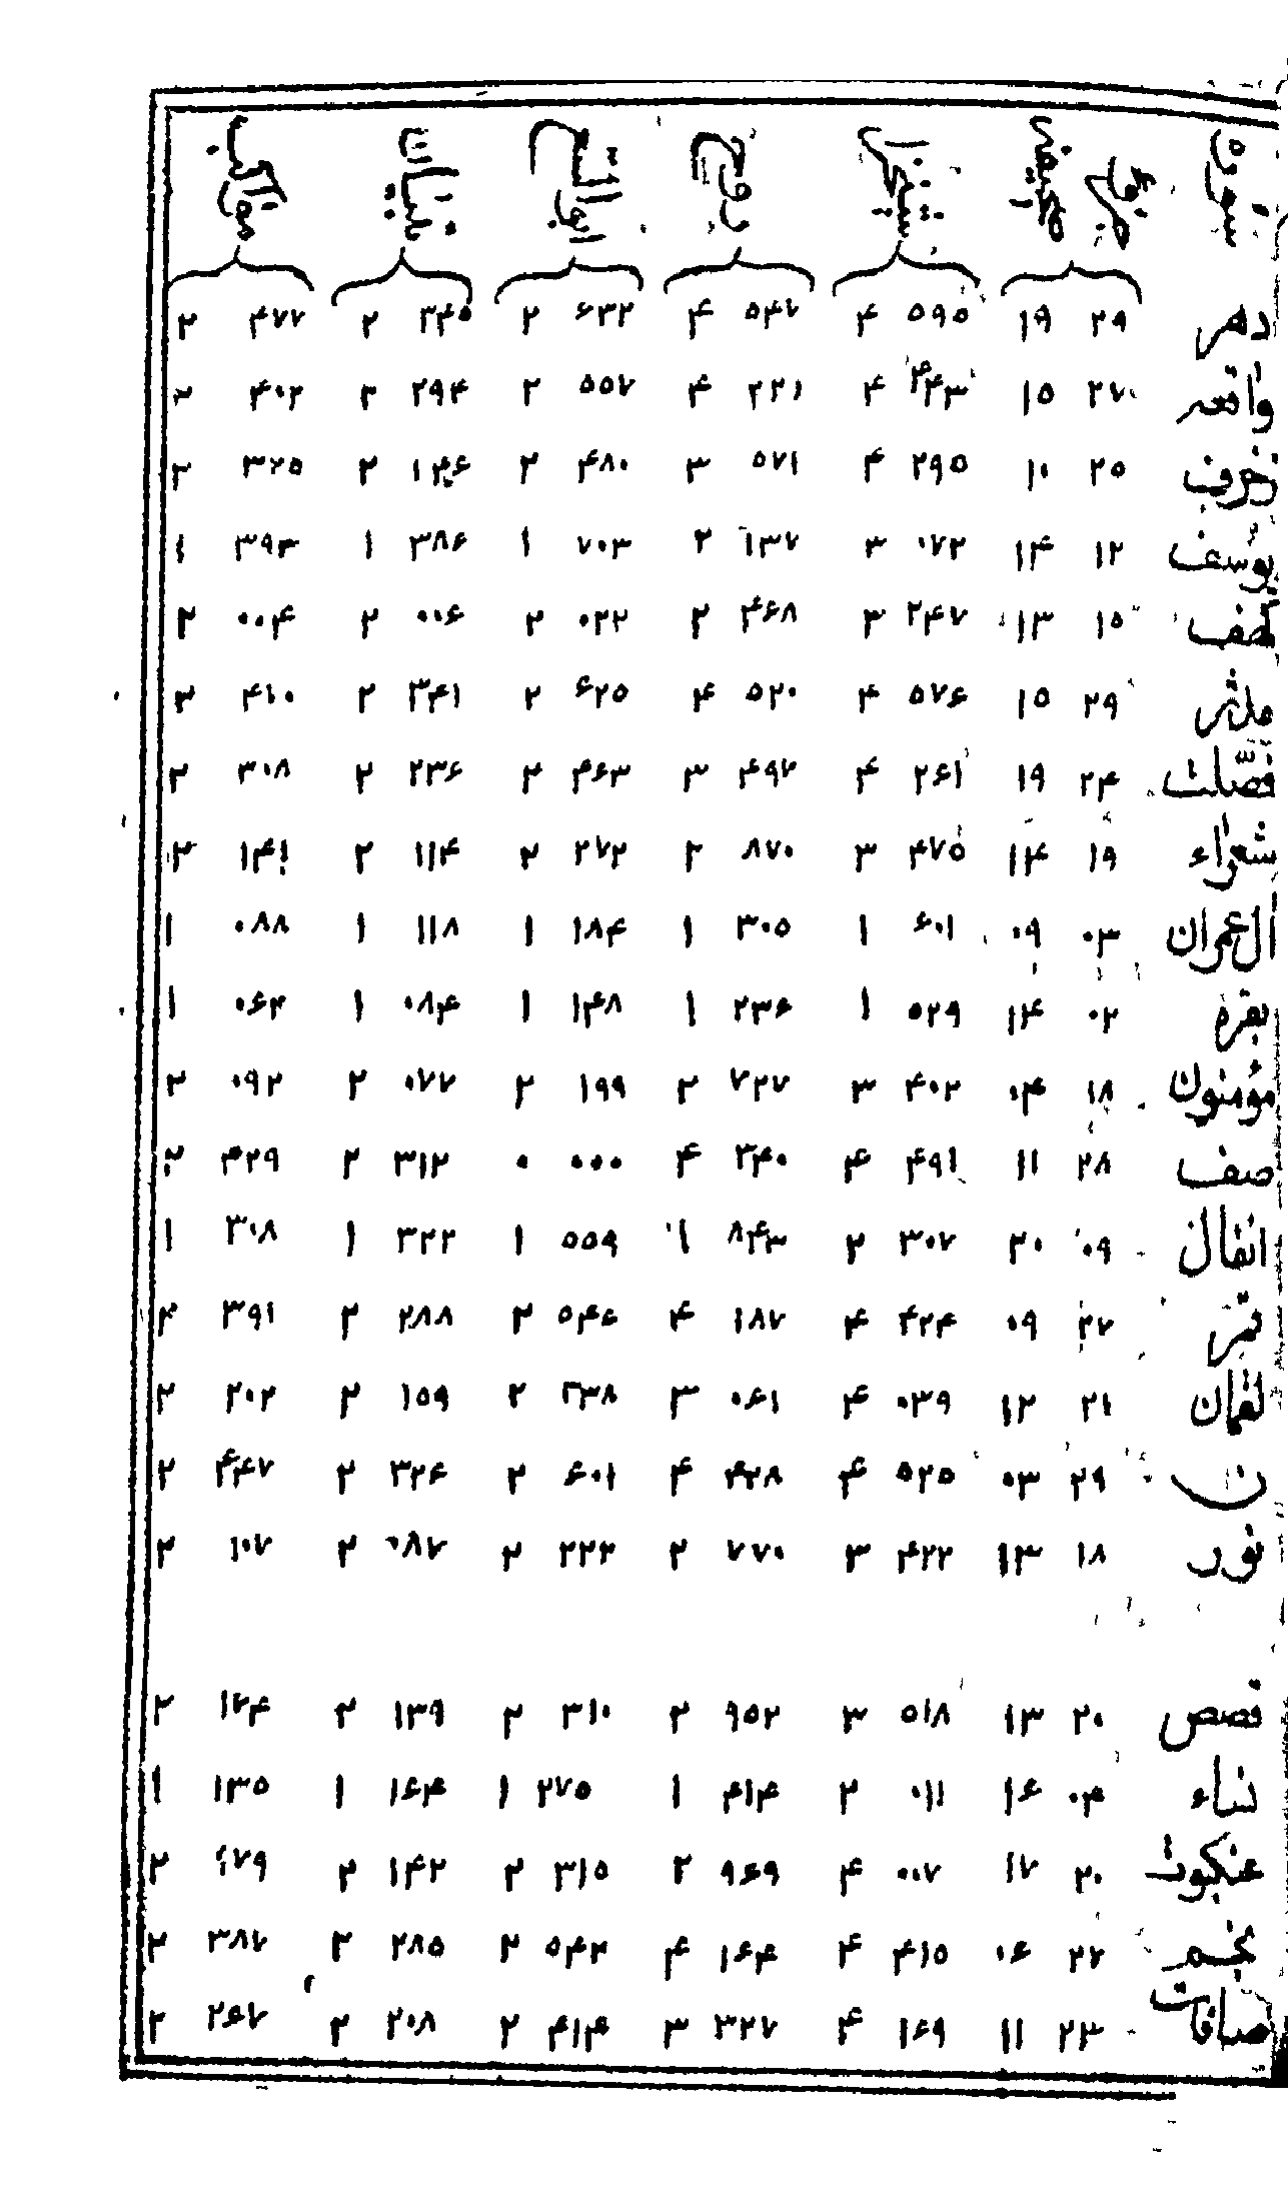 دهر ۲۹ ۱۹ ۵۹۵ ۴ ۵۴۷ ۴ ۶۳۲ ۲ ۳۴۵ ۲ ۴۷۷ ۲
واقعه ۲۷ ۱۵ ۴۴۳ ۴ ۲۲۱ ۴ ۵۵۷ ۲ ۲۹۴ ۲ ۴۰۲ ۲
زخرف ۲۵ ۱۰ ۲۹۵ ۴ ۵۷۱ ۳ ۴۸۰ ۲ ۱۴۶ ۲ ۳۲۵ ۲
یوسف ۱۲ ۱۴ ۰۷۲ ۳ ۱۳۷ ۲ ۷۰۳ ۱ ۳۸۶ ۱ ۳۹۳ ۱
کهف ۱۵ ۱۳ ۲۴۷ ۳ ۴۶۸ ۲ ۰۲۲ ۲ ۰۰۶ ۲ ۰۰۴ ۲
مدثر ۲۹ ۱۵ ۵۷۶ ۴ ۵۲۰ ۴ ۶۲۵ ۲ ۳۴۱ ۲ ۴۱۰ ۲
فصّلت ۲۴ ۱۹ ۲۶۱ ۴ ۴۹۷ ۳ ۴۶۳ ۲ ۲۳۶ ۲ ۳۰۸ ۲
شعراء ۱۹ ۱۴ ۴۷۵ ۳ ۸۷۰ ۲ ۲۷۲ ۲ ۱۱۴ ۲ ۱۴۱ ۲
ال عمران ۰۳ ۰۹ ۶۰۱ ۱ ۳۰۵ ۱ ۱۸۴ ۱ ۱۱۸ ۱ ۰۸۸ ۱
بقره ۰۲ ۱۴ ۵۲۹ ۱ ۲۳۶ ۱ ۱۴۸ ۱ ۰۸۴ ۱ ۰۶۲ ۱
مؤمنون ۱۸ ۰۴ ۴۰۲ ۳ ۷۲۷ ۲ ۱۹۹ ۲ ۰۷۷ ۲ ۰۹۲ ۲
صف ۲۸ ۱۱ ۴۹۱ ۴ ۳۴۰ ۴ ۰۰۰ ۰ ۳۱۲ ۲ ۴۲۹ ۲
انفال ۰۹ ۲۰ ۳۰۷ ۲ ۸۴۳ ۱ ۵۵۹ ۱ ۳۲۲ ۱ ۳۰۸ ۱
قمر ۲۷ ۰۹ ۴۲۴ ۴ ۱۸۷ ۴ ۵۴۶ ۲ ۲۸۸ ۲ ۳۹۱ ۲
لقمان ۲۱ ۱۲ ۰۳۹ ۴ ۰۶۱ ۳ ۳۳۸ ۲ ۱۵۹ ۲ ۲۰۲ ۲
ن ۲۹ ۰۳ ۵۲۵ ۴ ۴۲۸ ۴ ۶۰۱ ۲ ۳۲۶ ۲ ۴۴۷ ۲
نور ۱۸ ۱۳ ۴۲۲ ۳ ۷۷۰ ۲ ۲۲۲ ۲ ۰۸۷ ۲ ۱۰۷ ۲
قصص ۲۰ ۱۳ ۵۱۸ ۳ ۹۵۲ ۲ ۳۱۰ ۲ ۱۳۹ ۲ ۱۷۴ ۲
نساء ۰۴ ۱۶ ۰۱۱ ۲ ۴۱۴ ۱ ۲۷۵ ۱ ۱۶۴ ۱ ۱۳۵ ۱
عنکبوت ۲۰ ۱۷ ۰۰۷ ۴ ۹۶۹ ۲ ۳۱۵ ۲ ۱۴۲ ۲ ۱۷۹ ۲
نجم ۲۷ ۰۶ ۴۱۵ ۴ ۱۶۴ ۴ ۵۴۲ ۲ ۲۸۵ ۲ ۳۸۷ ۲
صافات ۲۳ ۱۱ ۱۶۹ ۴ ۳۲۷ ۳ ۴۱۴ ۲ ۲۰۸ ۲ ۲۶۷ ۲